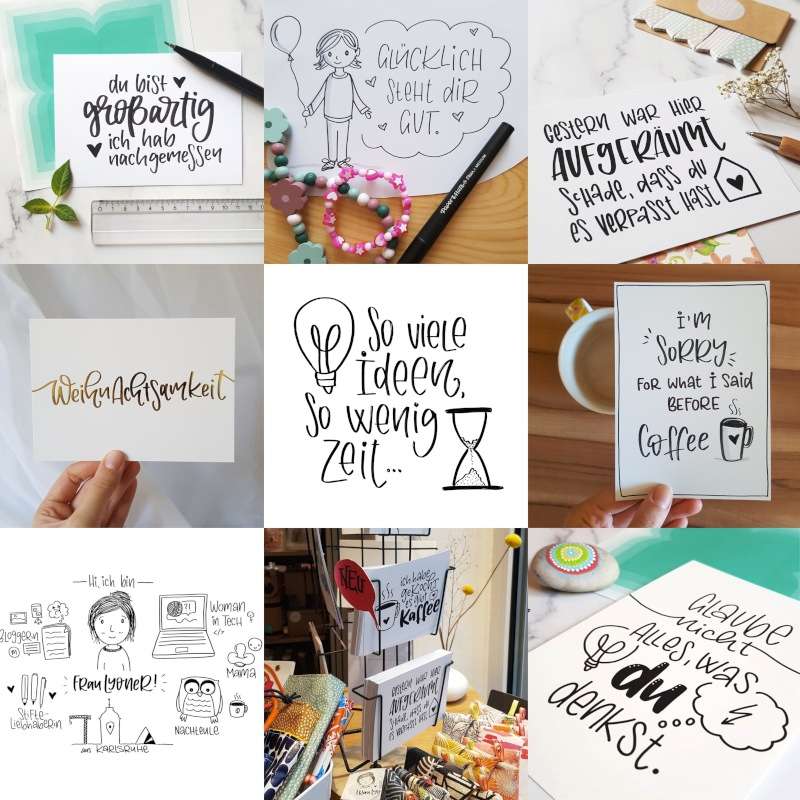 du bist
großartig
ich hab
nachgemessen
GLÜCKLICH
STEHT DIR
GUT.
GESTERN WAR HIER
AUFGERÄUMT
SCHADE, DASS DU
ES VERPASST HAST
WeihnAchtsamkeit
So viele
Ideen,
So wenig
Zeit...
I'M
SORRY
FOR WHAT I SAID
BEFORE
Coffee
Hi, ich bin
Bloggerin
Woman
in Tech
</>
Mama
Frau Lyoner!
Stifte-
Liebhaberin
aus KARLSRUHE
NACHTEULE
NEU
ich habe
gekocht
es gibt
KAFFEE
GESTERN WAR HIER
AUFGERÄUMT
SCHADE, DASS DU
ES VERPASST HAST
GLAUBE
nicht
ALLES, WAS
du...
denkst.